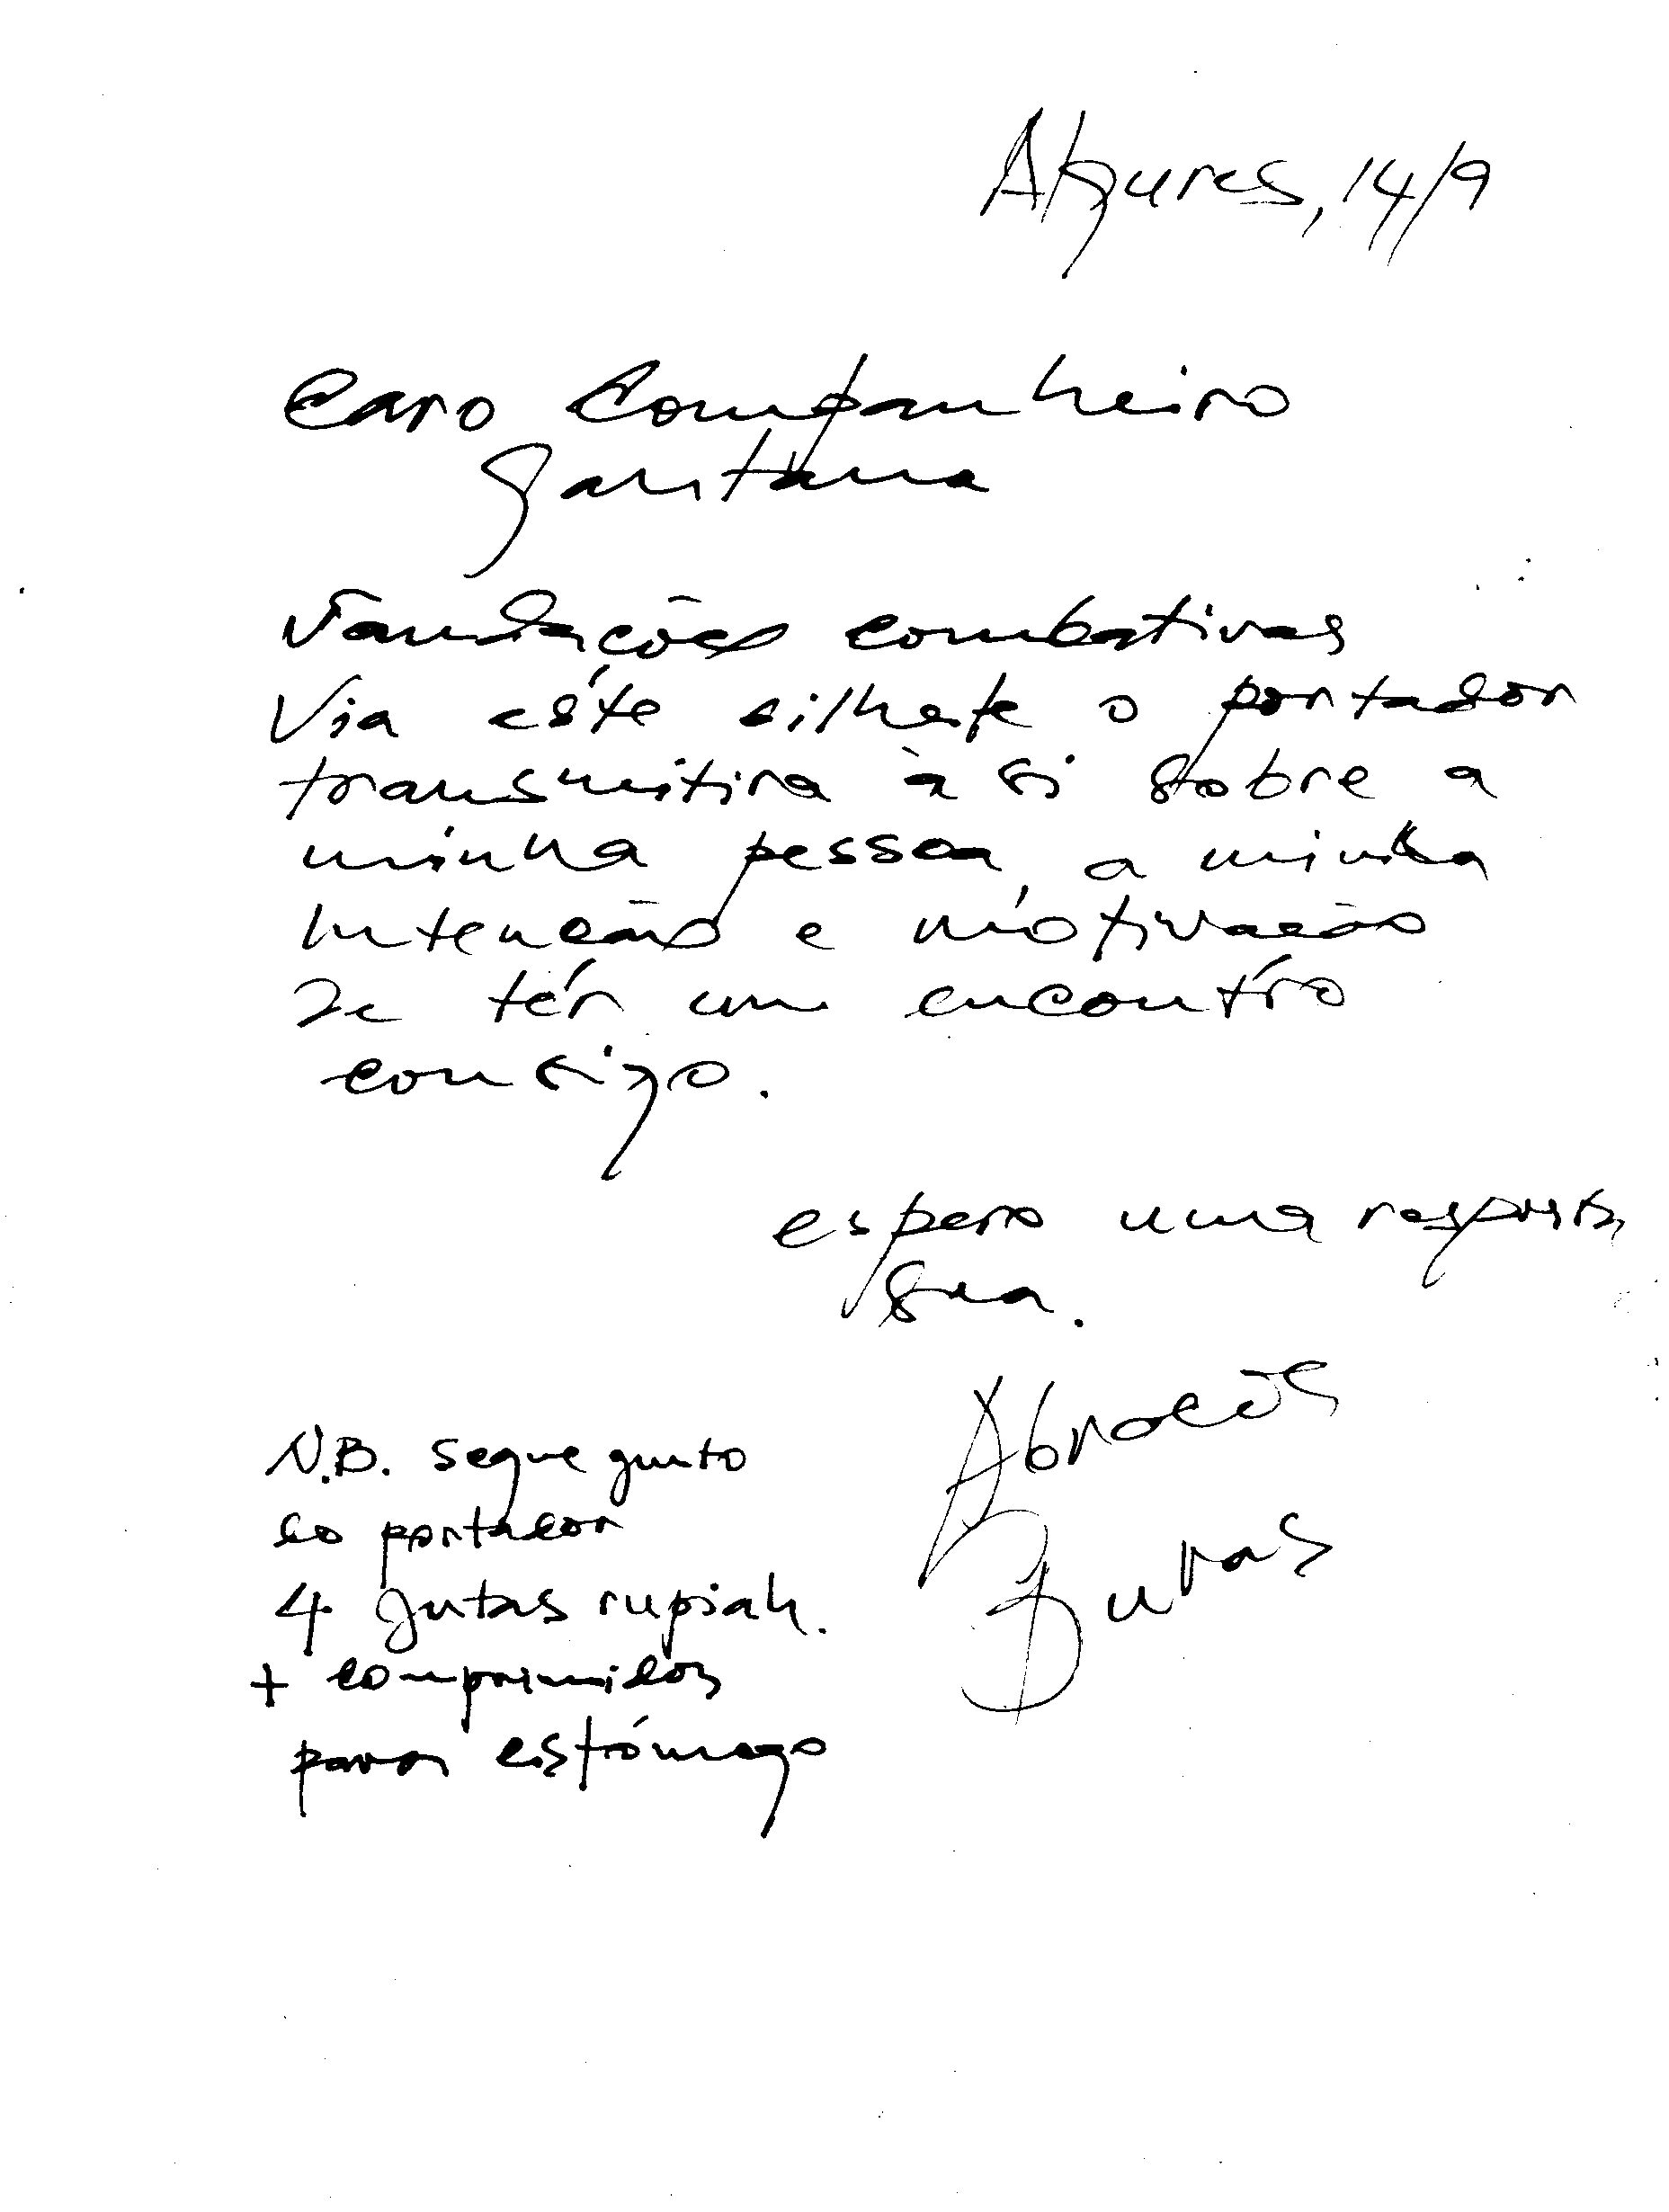 Algures, 14/9
Caro Companheiro
Santana
Saudações combativas
Via este bilhete o portador
transmitira à si sobre a
minha pessoa, a minha
intenção e motivação
de tér um encontro
consigo.
espero uma resposta
sua.
Abraços
N.B. segue junto
do portador
4 Jutas rupiah.
+ comprimidos
para estómago